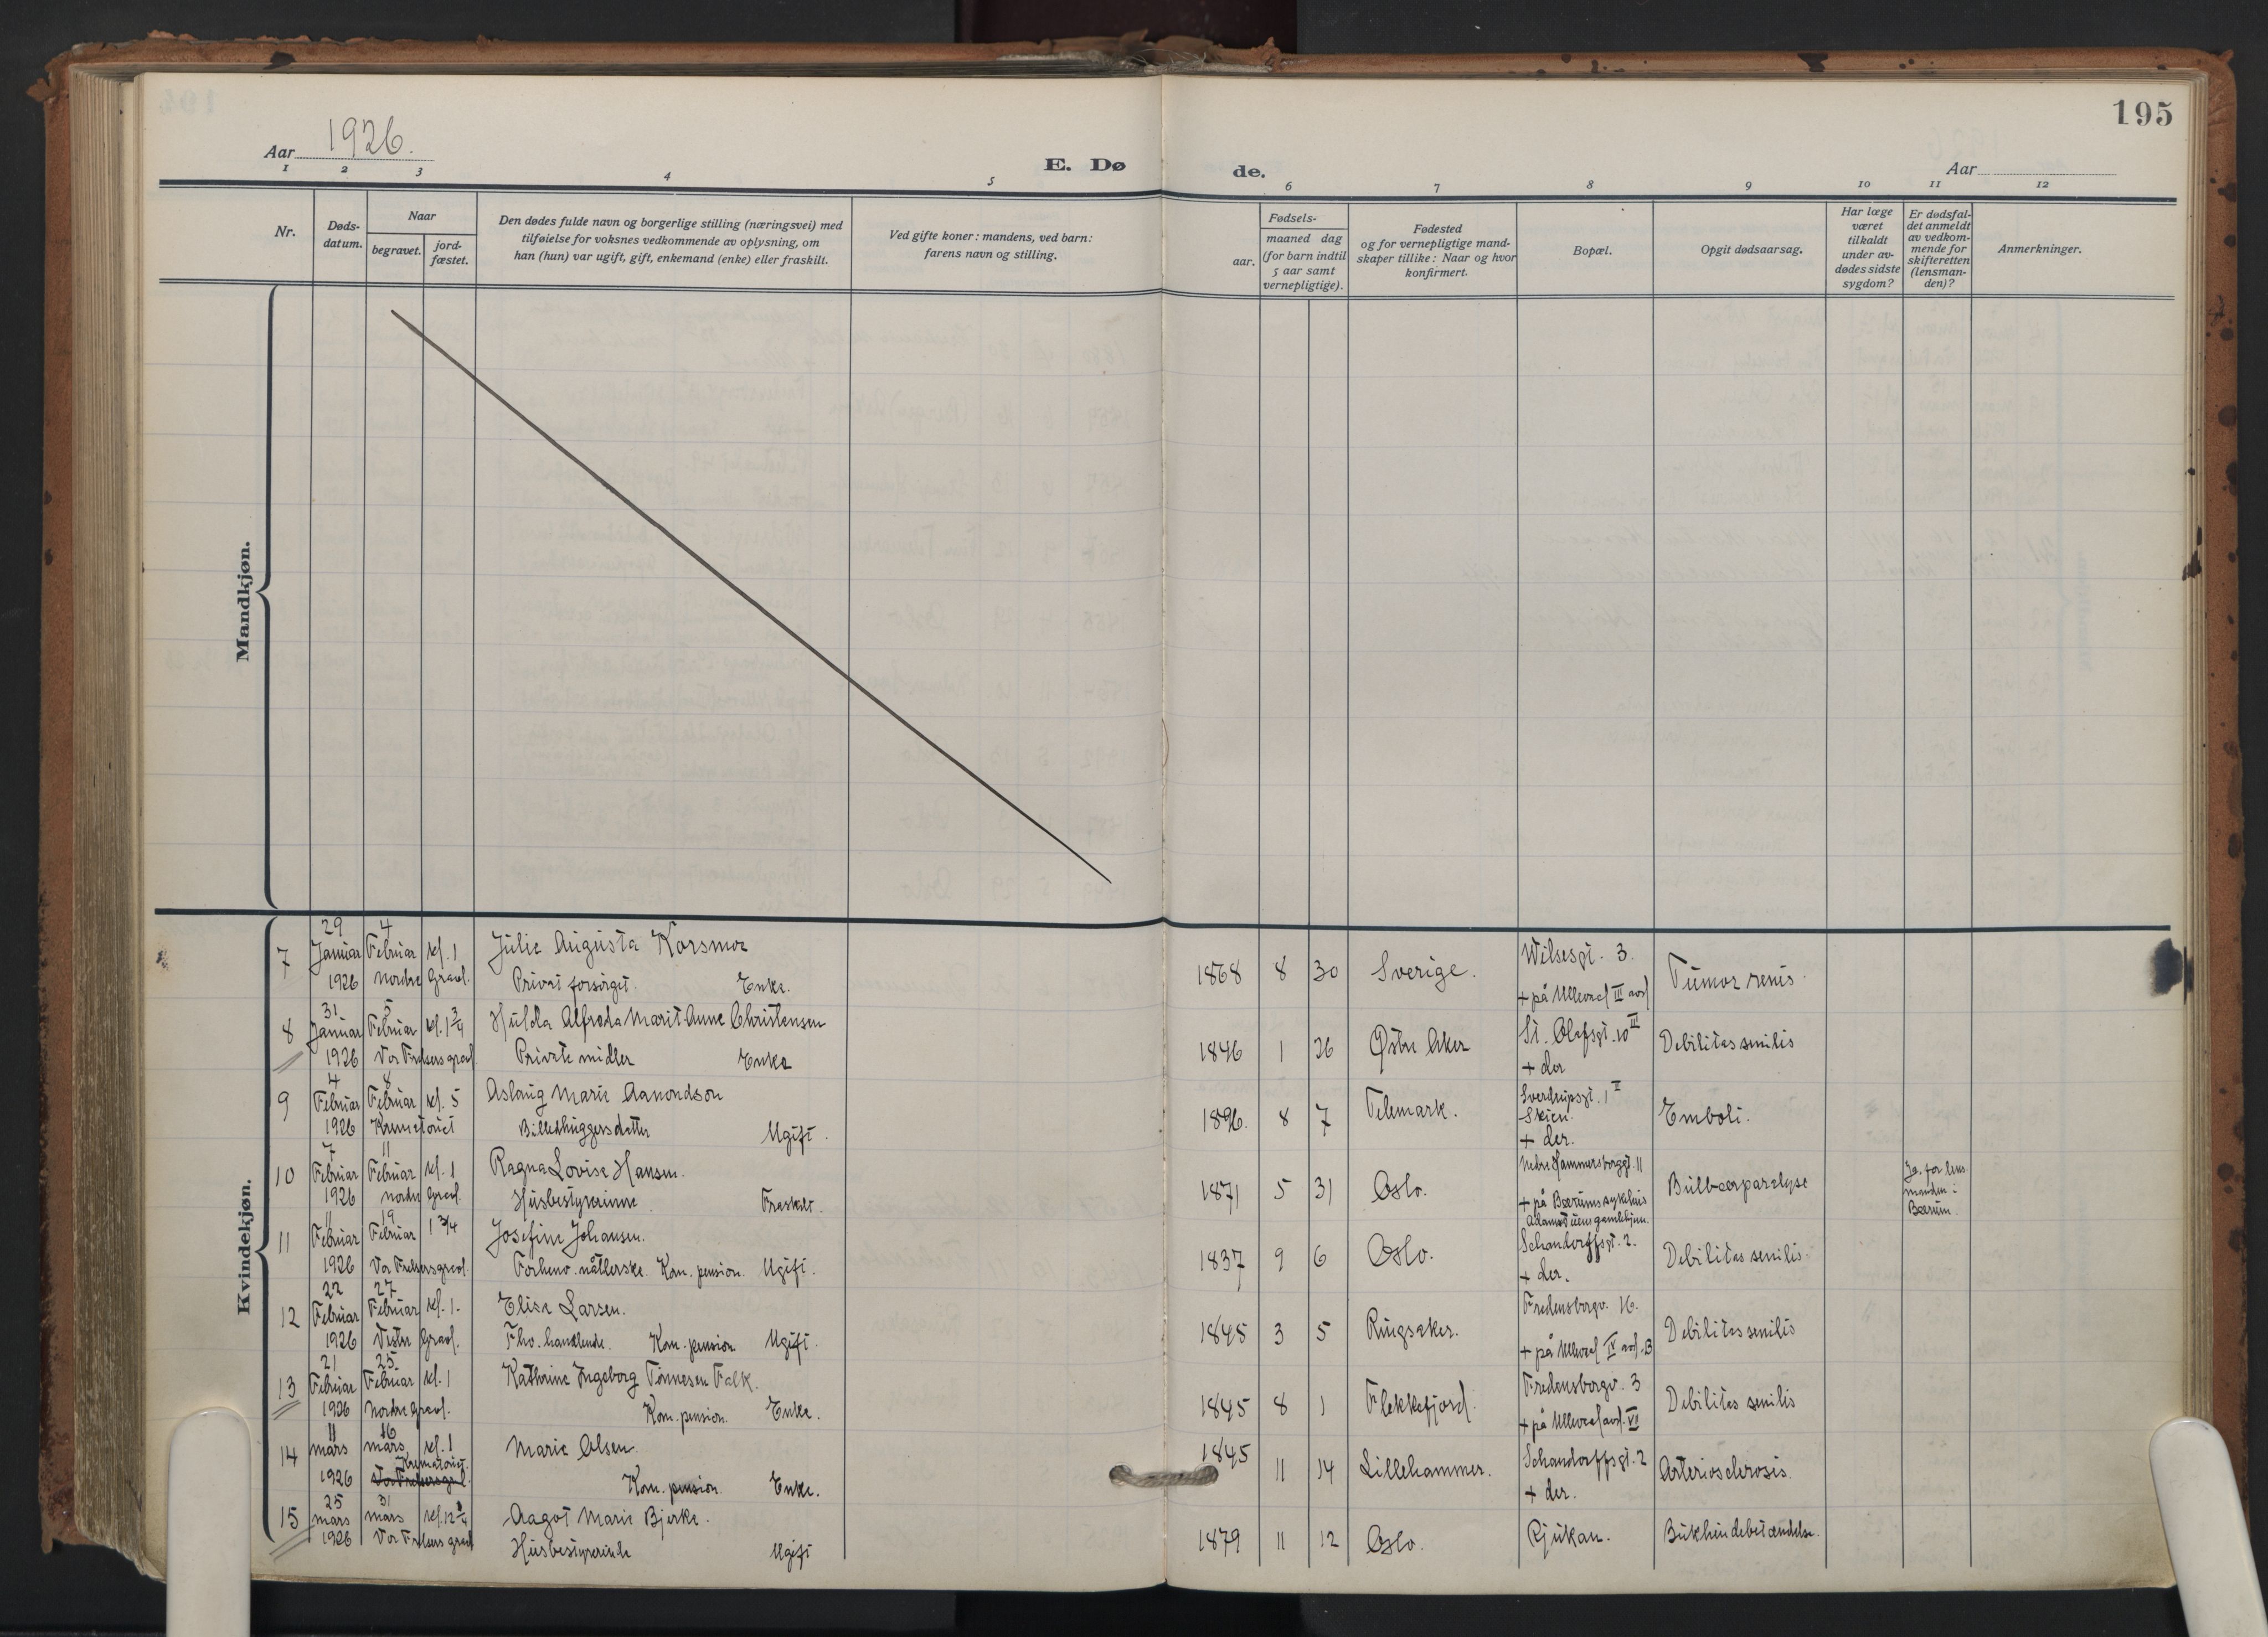 195
Aar 1926.
E. Døde.
Aar
1 2 3 4 5 6 7 8 9 10 11 12
Nr.
Døds-
datum.
Naar
begravet.
jord-
fæstet.
Den dødes fulde navn og borgerlige stilling (næringsvei) med
tilføielse for voksnes vedkommende av oplysning, om
han (hun) var ugift, gift, enkemand (enke) eller fraskilt.
Ved gifte koner: mandens, ved barn:
farens navn og stilling.
Fødsels-
aar.
maaned dag
(for barn indtil
5 aar samt
vernepligtige).
Fødested
og for vernepligtige mand-
skaper tillike: Naar og hvor
konfirmert.
Bopæl.
Opgit dødsaarsag.
Har læge
været
tilkaldt
under av-
dødes sidste
sygdom?
Er dødsfal-
det anmeldt
av vedkom-
mende for
skifteretten
(lensman-
den)?
Anmerkninger.
Mandkjøn.
Kvindekjøn.
29 4
7 Januar Februar kl. 1 Julie Augusta Korsmo Wilsesgt. 3.
1926 Nordre Gravl. Privat forsørget. Enke. 1868 8 30 Sverige. + på Ullevaal III avd Tumor renis.
31 5
8 Januar Februar kl. 1 3/4 Hulda Alfreda Marit Anne Christensen St. Olafsgt. 10 III
1926 Vor Frelsers gravl. Private midler Enke 1846 1 26 Østre Aker + der Debilitas senilis
4 8
9 Februar Februar kl. 5 Aslaug Marie Aamondson Sverdrupsgt. 1 II
1926 Krematoriet Billedhuggersdatter Ugift. 1896. 8 7 Telemark. Skien. Emboli.
+ der.
7 11
10 Februar Februar kl. 1 Ragna Lovise Hansen. Nedre Hammersborggt. 11
1926 Nordre Gravl. Husbestyrerinne Fraskilt. 1871 5 31 Oslo. + på Bærums sykehus Bulbærparalyse Ja. for lens
manden i
Bærum.
11 19
11 Februar Februar 1 3/4 Josefine Johansen. Schandorffsgt. 2.
1926 Vor Frelsers gravl. Forhenv. nåtlerske. Kom. pension. Ugift. 1837 9 6 Oslo. + der. Debilitas senilis.
22 27
12 Februar Februar kl. 1. Elise Larsen. Fredensborgv. 16.
1926 Vestre Gravl. Fhv. handlende. Kom. pension Ugift. 1845 3 5 Ringsaker. + på Ullevaal IV avd. B Debilitas senilis
21 25.
13 Februar Februar kl. 1 Kathrine Ingeborg Tønnesen Falk. Fredensborgv. 3
1926 Nordre gravl. Kom. pension. Enke. 1845 8 1 Flekkefjord. + på Ullevaal avd. VI Debilitas senilis
11 16
14 mars mars kl. 1 Marie Olsen. 1845 11 14 Lillehammer. Schandorffsgt. 2 Arteriosclerosis.
Krematoriet.
1926 Vor Frelsers gravl Kom. pension. Enke. + der.
25 31
15 mars mars kl. 12 Aagot Marie Bjerke. 1879 11 12 Oslo. Rjukan. Bukhindebetændelse.
1926 Vor Frelsers gravl Husbestyrerinde Ugift